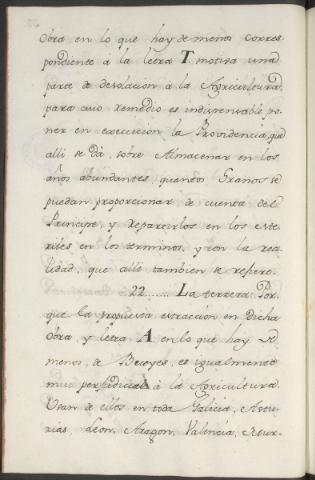 obra en lo que hay de menos corres-
pondiente à la letra T. motiva una
parte de desolacion à la Agricultura,
para cuio remedio es indispensable po-
ner en execucion la Providencia, que
alli se dà, sobre Almacenar en los
años abundantes, quantos Granos se
puedan proporcionar de cuenta del
Principe, y repartirlos en los este-
riles en los terminos, y con la rea-
lidad, que alli tambien se refiere.
22...... La tercera: Por-
que la propuesta extraccion en dicha
Obra, y letra A en lo que hay de
menos, de Bueyes, es igualmente
mui perjudicial à la Agricultura.
Usan de ellos en toda Galicia, Astu-
rias, Leon, Aragon, Valencia,